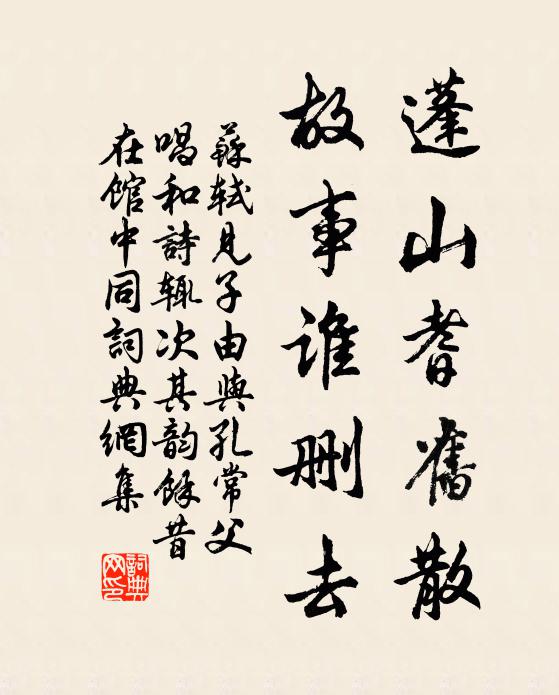 蓬山耆舊散
故事谁删去
蘇軾見子由與孔常父
唱和詩辄次其韵餘昔
在馆中同詞典網集
詞典
网印